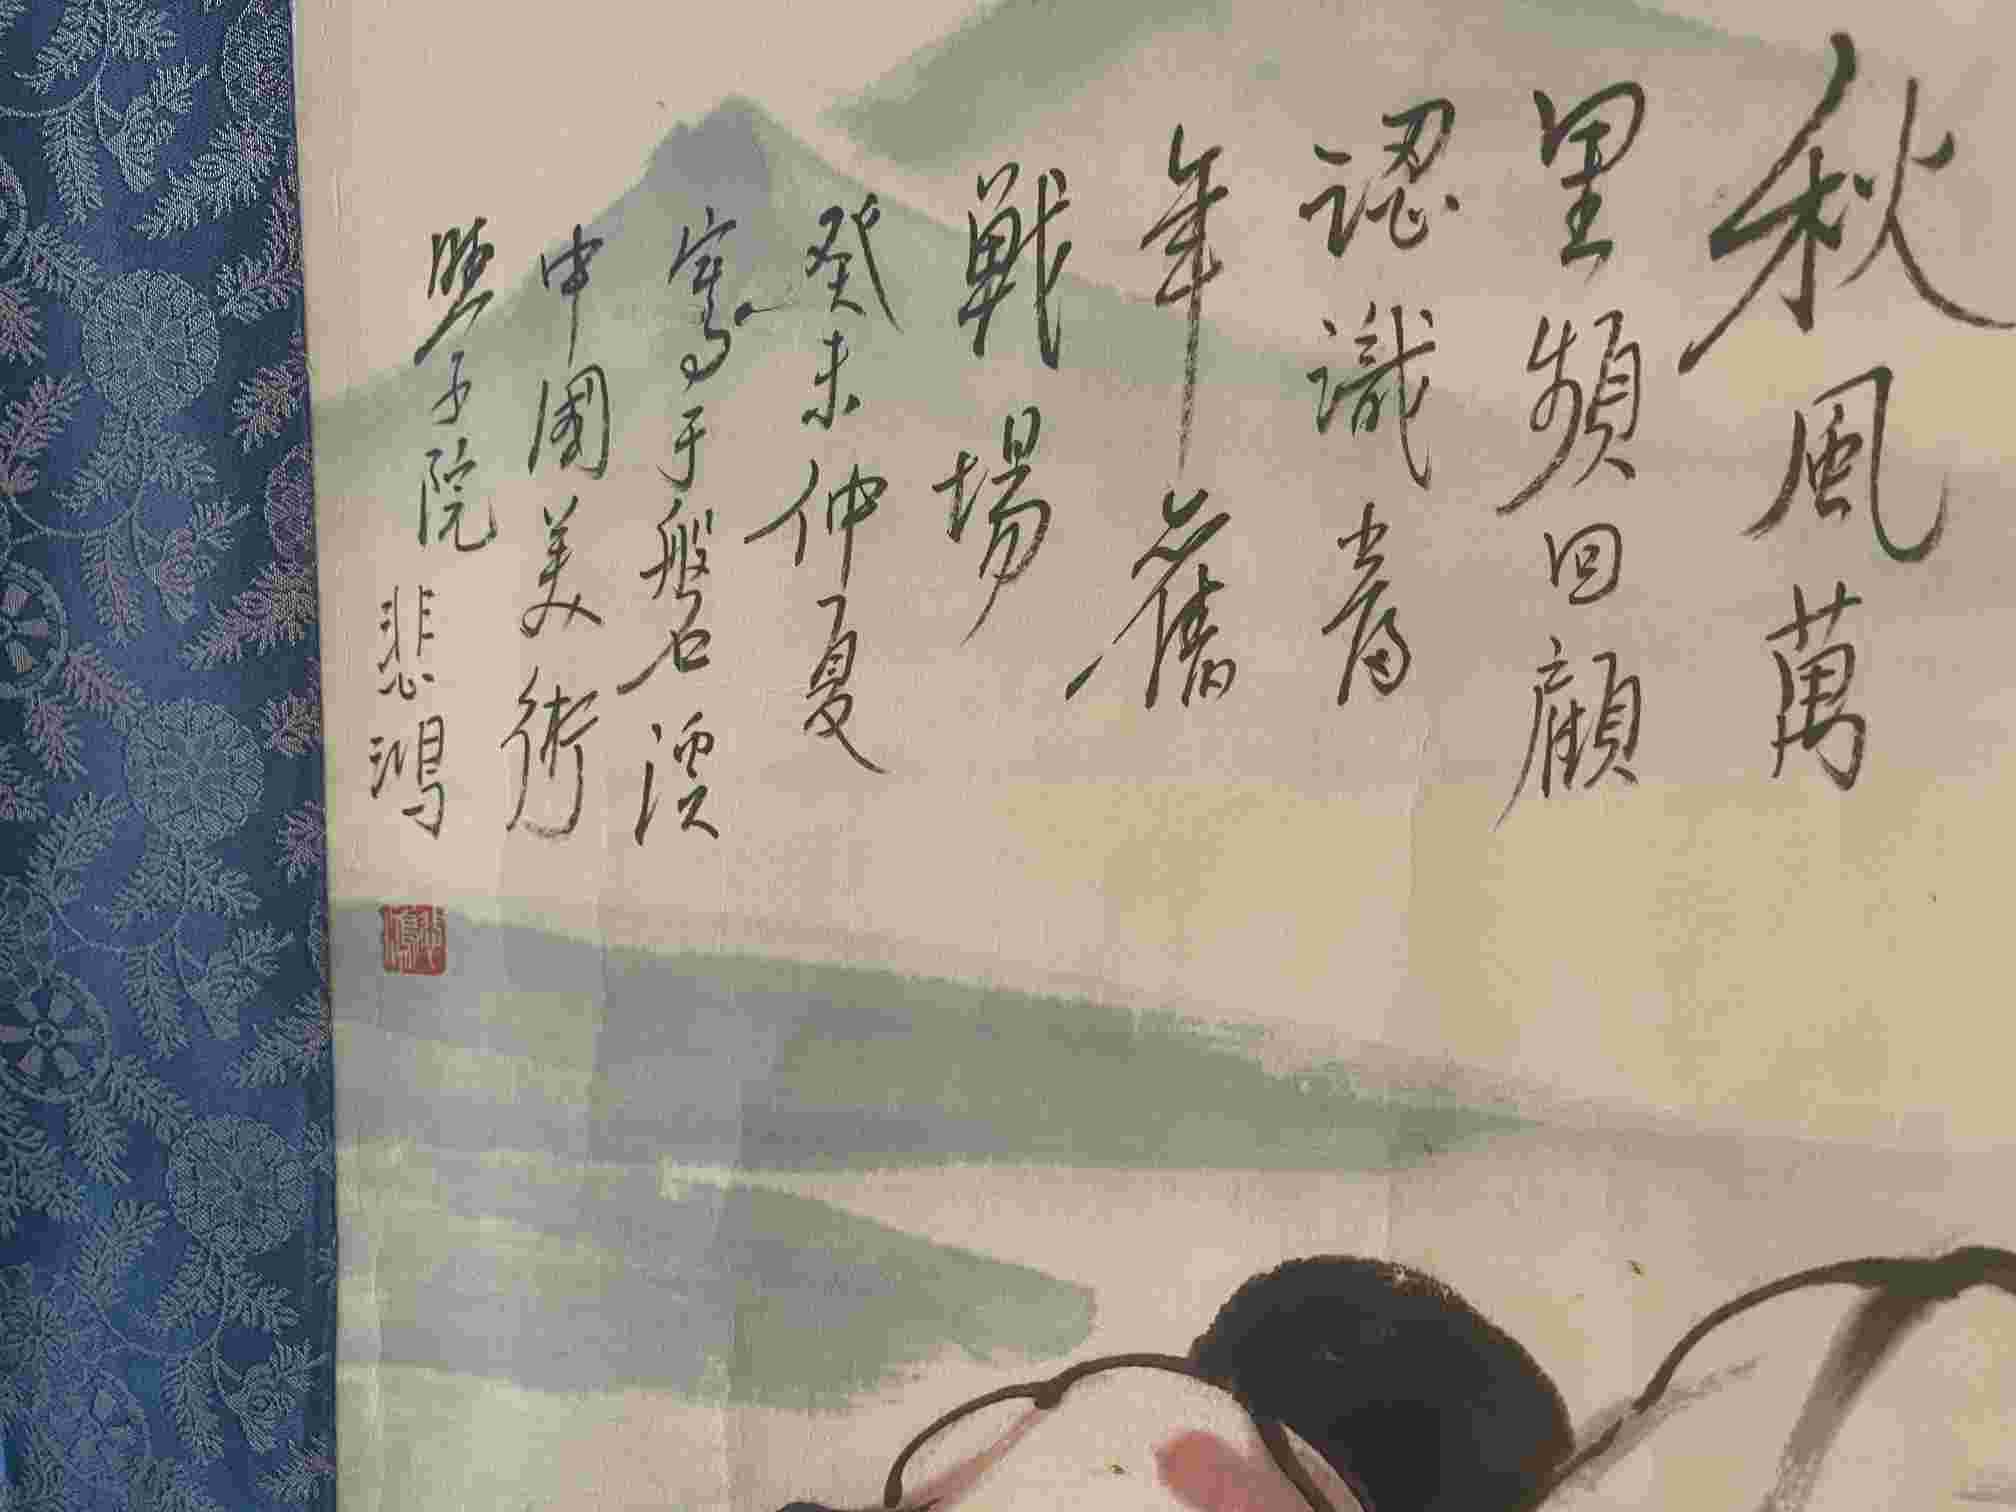 秋風萬
里頻回顧
認識當
年舊
戰場
癸未仲夏
寫于磐石溪
中國美術
學院 悲鴻
悲鴻